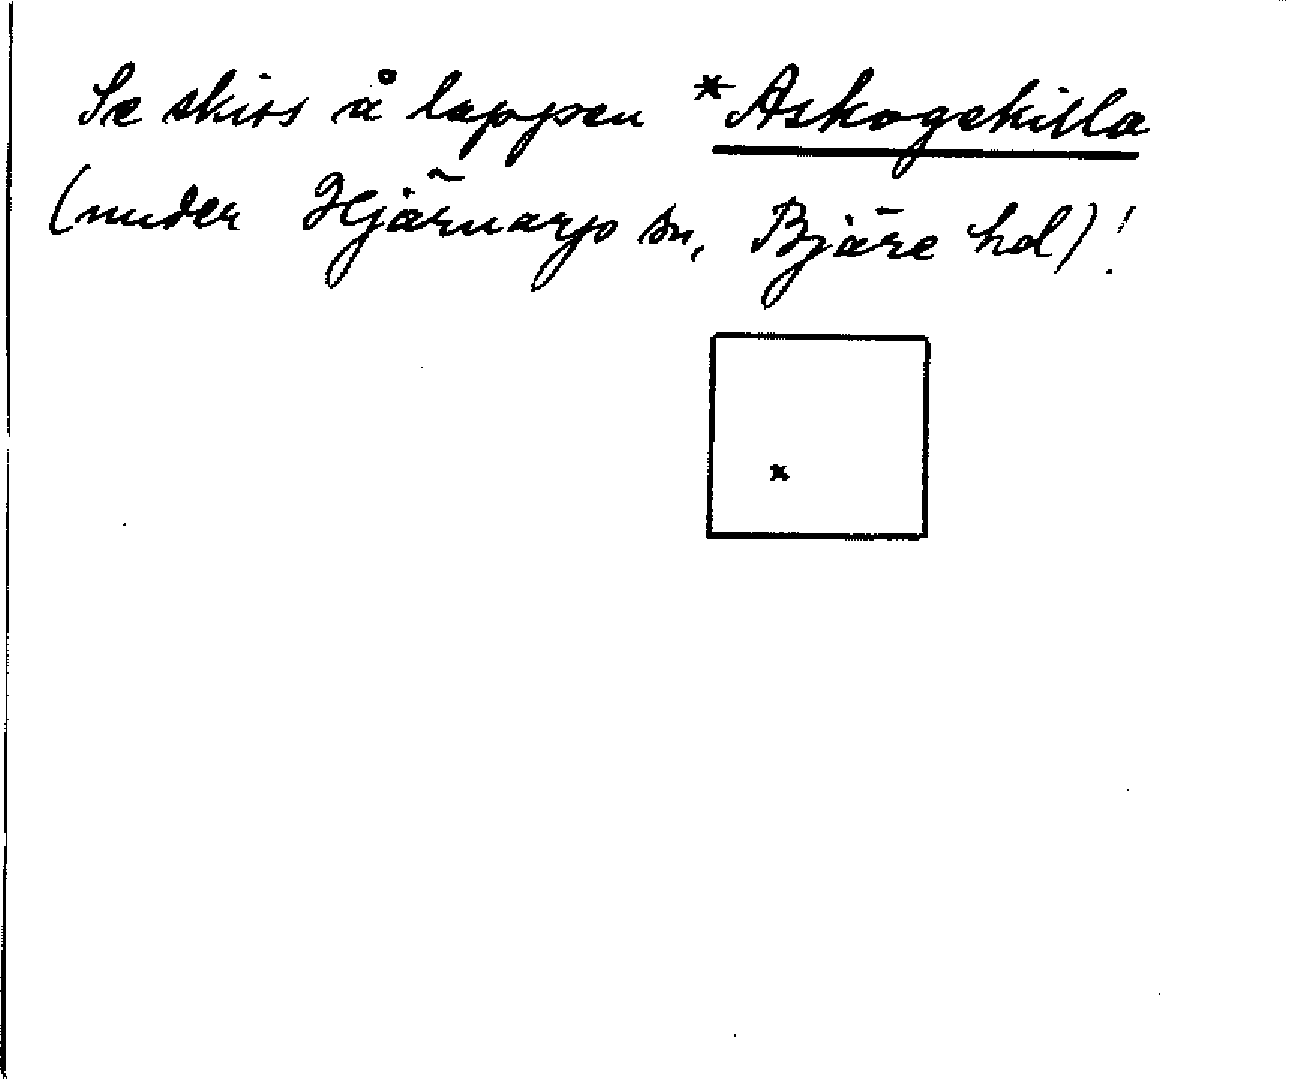 Se skiss å lappen *Askogekilla
(under Hjärnarp sn, Bjäre hd)!
x